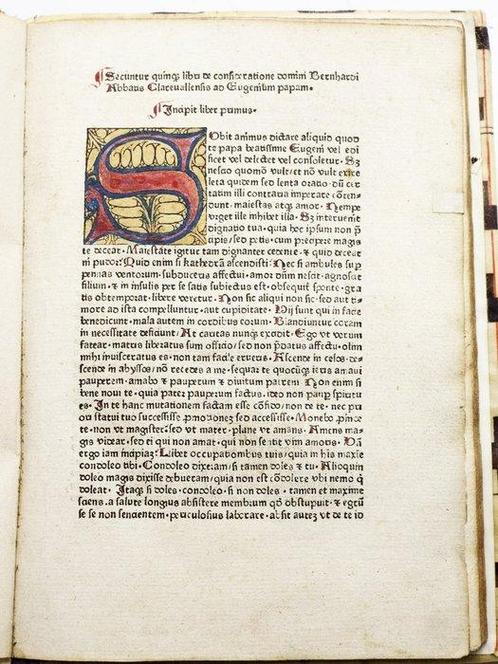 Secuntur quinqȝ libri de consideratione domini Bernhardi
Abbatis Clareuallensis ad Eugenium papam.
Incipit liber primus.
Subit animus dictare aliquid quod
te papa beatissime Eugeni vel edi
ficet vel delectet vel consoletur. Sȝ
nescio quomō vult et nō vult exire
leta quidem sed lenta oratio. dū cer
tatim illi contraria imperare cōten
dunt. maiestas atqȝ amor. Nempe
vrget ille inhibet illa. Sȝ interuenit
dignatio tua. qua hoc ipsum non p̄
cipis. sed petis. cum precipere magis
te deceat. Maiestate igitur tam dignanter cedente. quid ce
ni pudor? Quid enim si kathedrā ascendisti? Nec si ambules sup
pennas ventorum. subduceris affectui. amor dn̄m nescit. agnoscit
filium. et in infulis per se satis subiectus est. obsequit sponte. gra
tis obtemperat. libere veretur. Non sic aliqui non sic. sed aut ti
more ad ista compelluntur. aut cupiditate. Hij sunt qui in facie
benedicunt. mala autem in cordibus eorum. Blandiuntur coram
in necessitate deficiunt. At caritas nunqȝ excidit. Ego vt verum
fatear. matris liberatus sum officio. sed non dp̄datus affectu. olim
mihi inuisceratus es. non tam facile erueris. Ascende in celos. de
scende in abyssos. nō recedes a me. sequar te quocūqȝ ieris amaui
pauperem. amabo et pauperum et diuitum patrem. Non enim si
bene noui te. quia pater pauperum factus. ideo non paup̄ spiritu
es. In te hanc mutationem factam esse cōfido. non de te. nec pri
ori statui tuo successisse p̄motionez sed accessisse. Monebo p̄inde
te. non vt magister. sed vt mater. plane vt amans. Amens ma
gis videar. sed ei qui non amat. qui non sentit vim amoris. Vn̄
ergo iam incipiaȝ? Libet occupationibus tuis. quia in his maxie
condoleo tibi. Condoleo dixerim. si tamen doles et tu. Alioquin
doleo magis dixisse debueram. quia non est condolere vbi nemo q̄
doleat. Itaqȝ si doles. condoleo. si non doles. tamen et maxime
sciens. a salute longius absistere membrum qd̄ obstupuit. et egrū
se se non sencientem. periculosius laborare. absit autez vt de te id